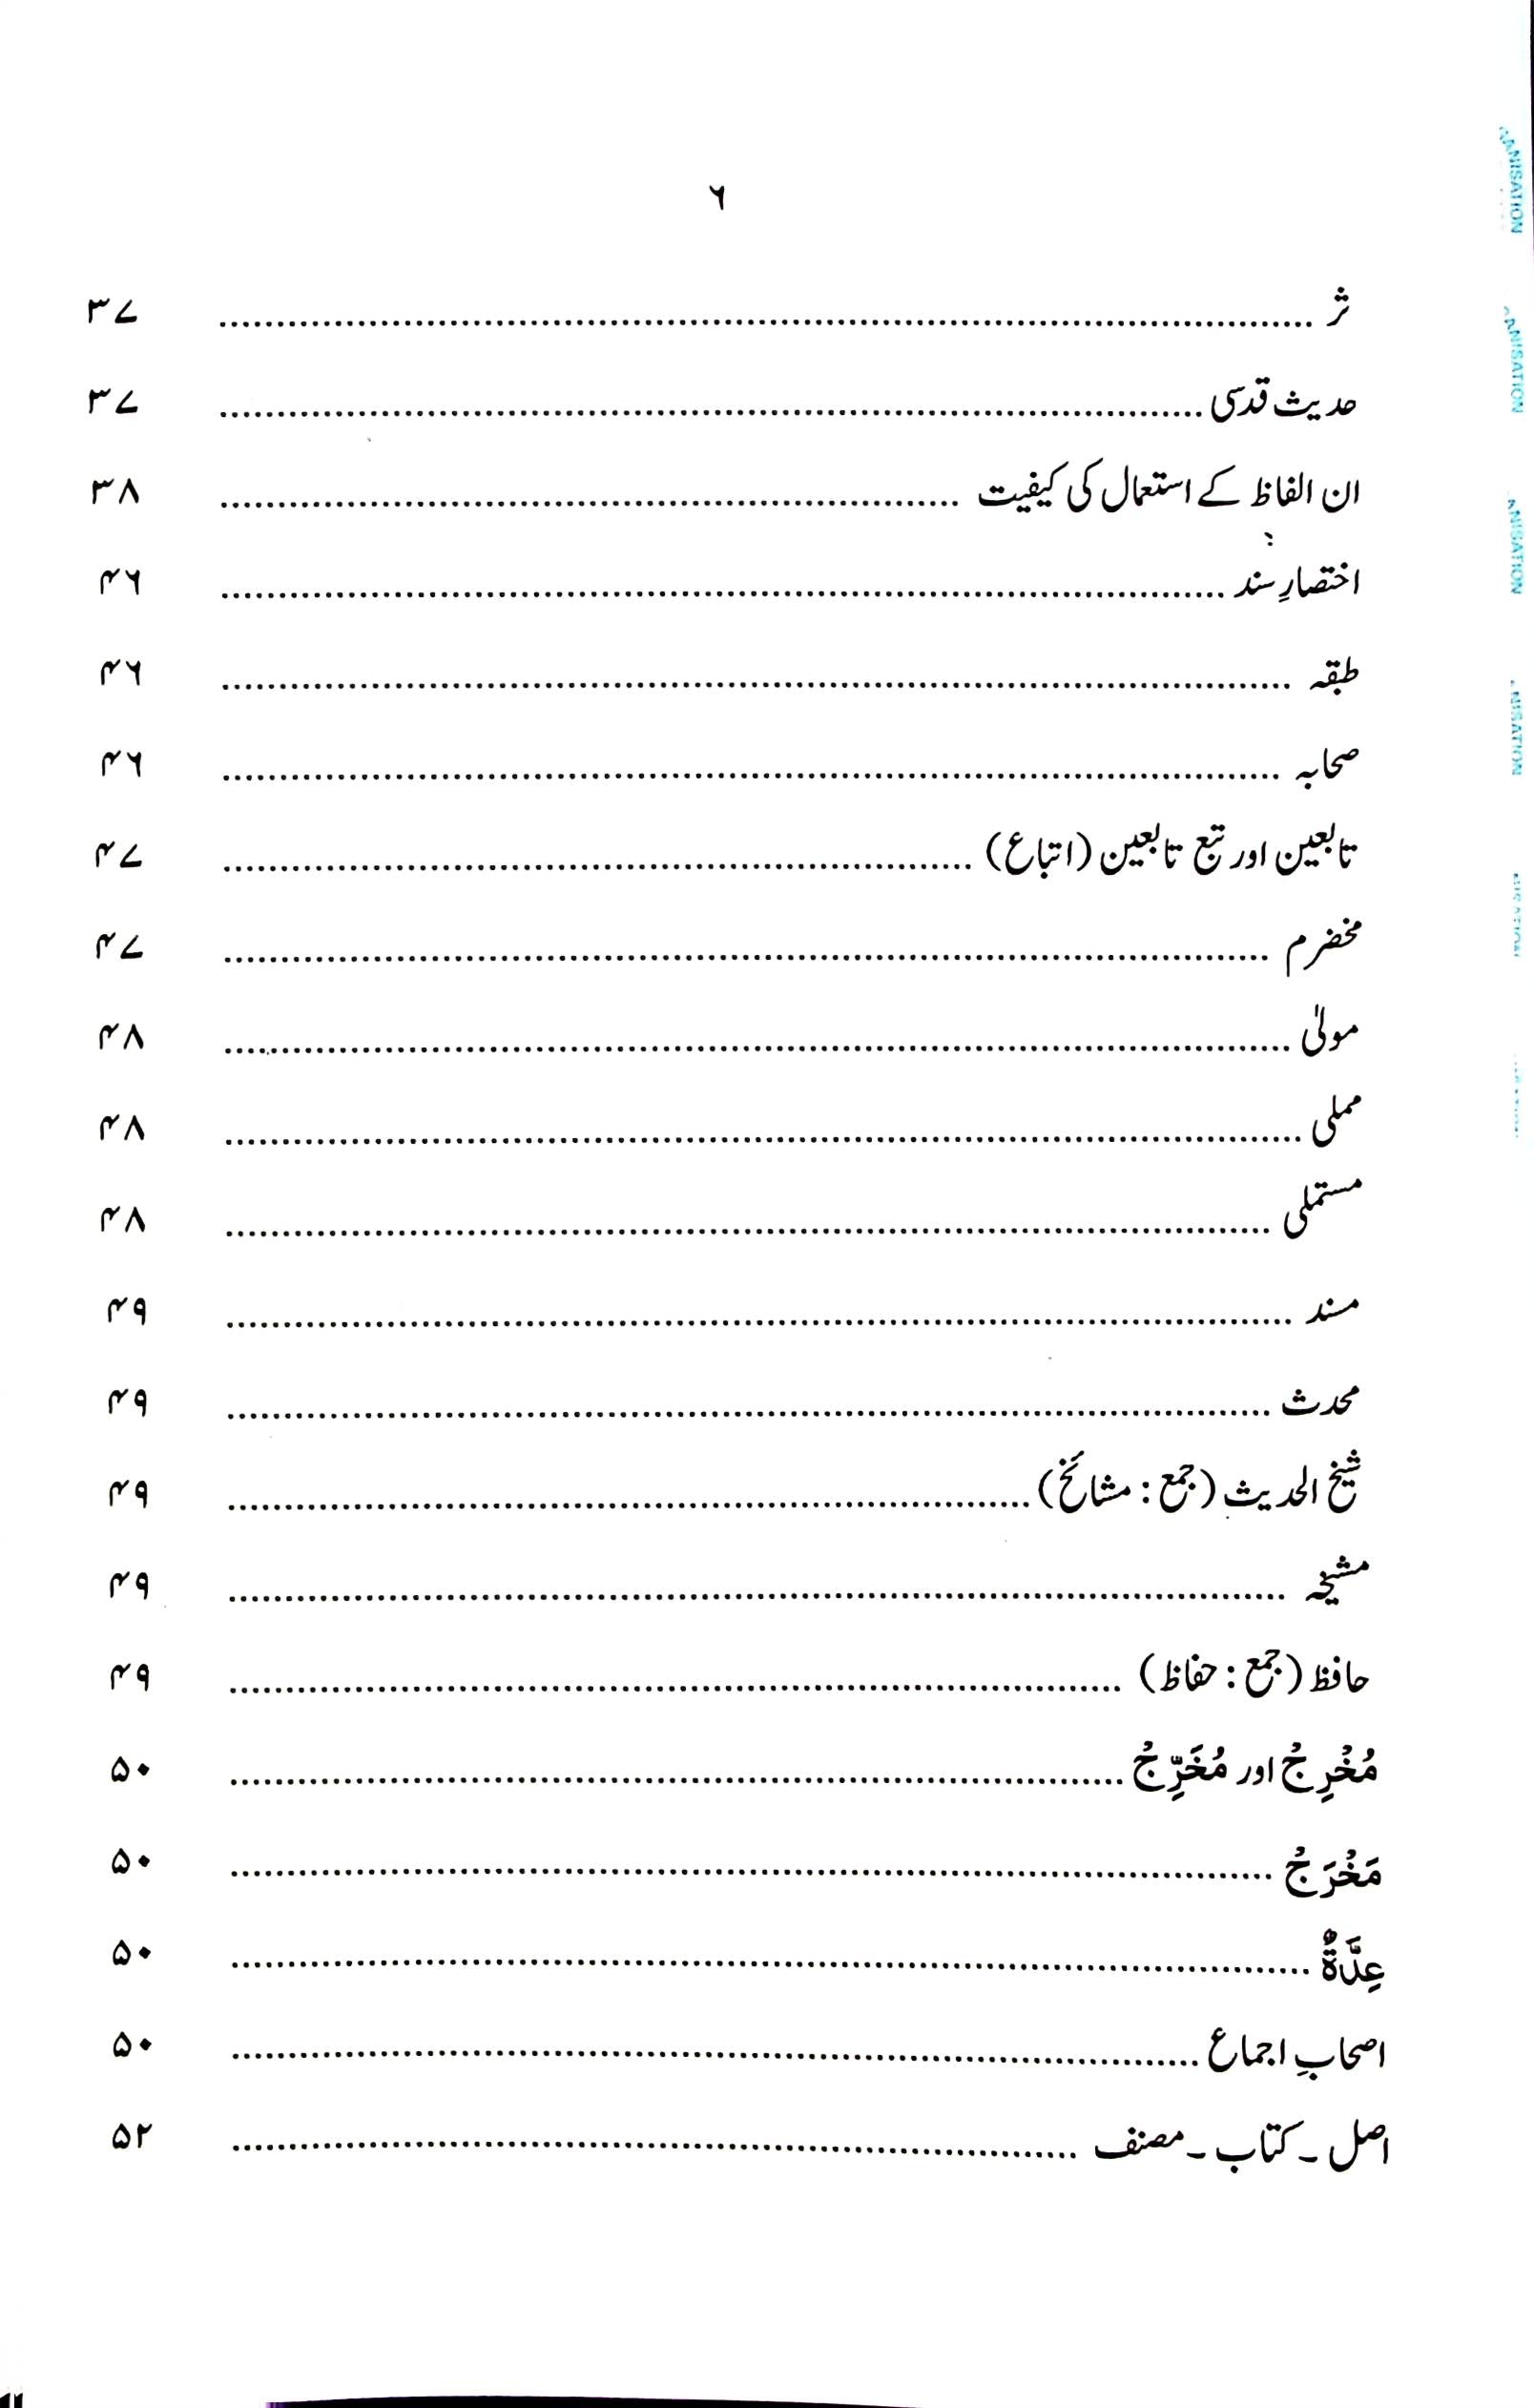 ۶
ثر ........ ۳۷
حدیث قدسی ........ ۳۷
ان الفاظ کے استعمال کی کیفیت ........ ۳۸
اختصارِ سند ........ ۴۶
طبقہ ........ ۴۶
صحابہ ........ ۴۶
تابعین اور تبع تابعین (اتباع) ........ ۴۷
مخضرم ........ ۴۷
مولیٰ ........ ۴۸
مملی ........ ۴۸
مستملی ........ ۴۸
مسند ........ ۴۹
محدث ........ ۴۹
شیخ الحدیث (جمع : مشائخ) ........ ۴۹
مشیخہ ........ ۴۹
حافظ (جمع : حفاظ) ........ ۴۹
مُخْرِجُ اور مُخَرِّجُ ........ ۵۰
مَخْرَجُ ........ ۵۰
عِدَّةٌ ........ ۵۰
اصحابِ اجماع ........ ۵۰
اصل ۔ کتاب ۔ مصنف ........ ۵۲